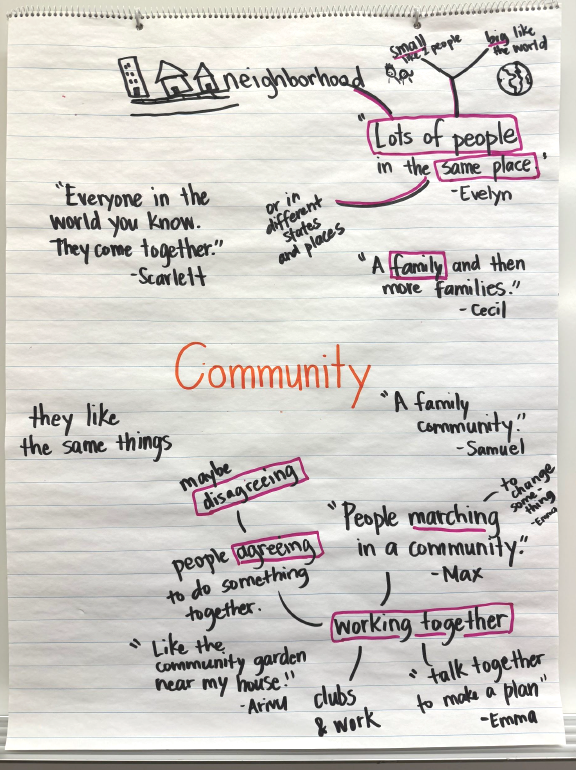 small
like 2 people
big like
the world
neighborhood
"Lots of people
in the same place."
-Evelyn
or in
different
states
and places
"Everyone in the
world you know.
They come together."
-Scarlett
"A family and then
more families."
-Cecil
Community
they like
the same things
"A family
community."
-Samuel
maybe
disagreeing
people agreeing
to do something
together.
"People marching
in a community."
-Max
to
change
some-
thing
-Emma
working together
"Like the
community garden
near my house."
-Arivu
clubs
& work
"talk together
to make a plan"
-Emma